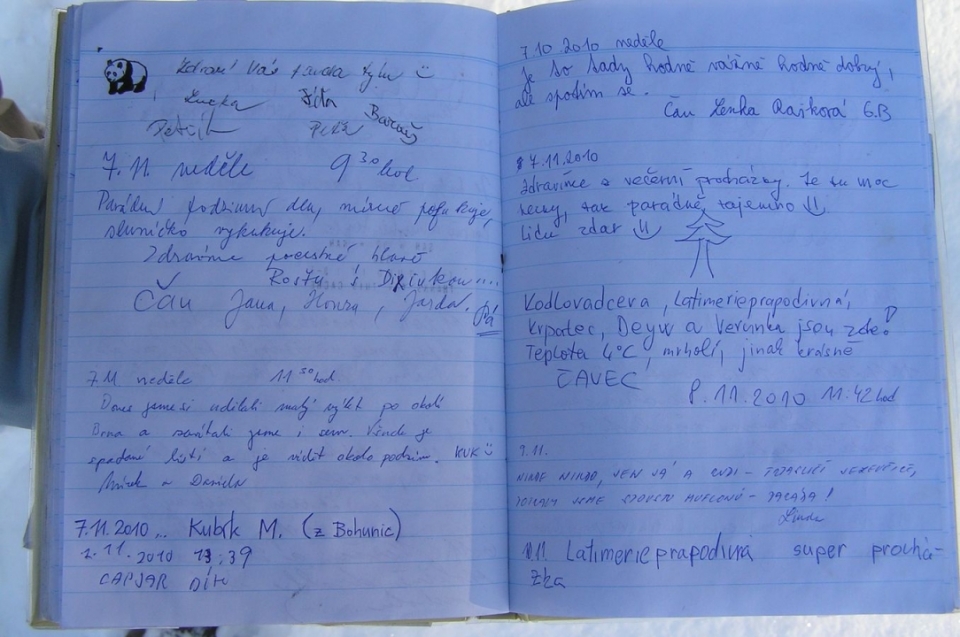 Zdraví Vás panda týku
Lucka Jíťa Baruš
Petřík Petr
7. 11. neděle 9 30 hod
Parádní podzimní den, mírně pofukuje,
sluníčko vykukuje.
Zdravíme pocestné hlavě
Rosťu s
Čau Jana, Honza, Jarda. Pá
7. 11. neděle 11 30 hod.
Dnes jsme si udělali malý výlet po okolí
Brna a zavítali jsme i sem. Všude je
spadané listí a je vidět okolo podzim. KUK
Mirek a Daniela
7.11.2010... Kubík M. (z Bohunic)
2.11.2010 13:39
7.10.2010 neděle
Je to tady hodně vážně hodně dobrý,
ale spotím se.
Čau Lenka Rašková 6.B
7.11.2010
Zdravíme z večerní procházky. Je tu moc
hezky, tak parádně tajemno
Lidu zdar
Vodlovadceva, Latimerieprapodivná,
Krpatec, Deyw a Verunka jsou zde!
Teplota 4°C, mrholí, jinak krásně
ČAVEC
8.11.2010 11:42 hod
9.11.
NIKDE NIKDO, JEN JÁ A
JSME STOVKU MUFLONŮ - PARÁDA!
Linda
11.11. Latimerieprapodivná super prochá-
zka